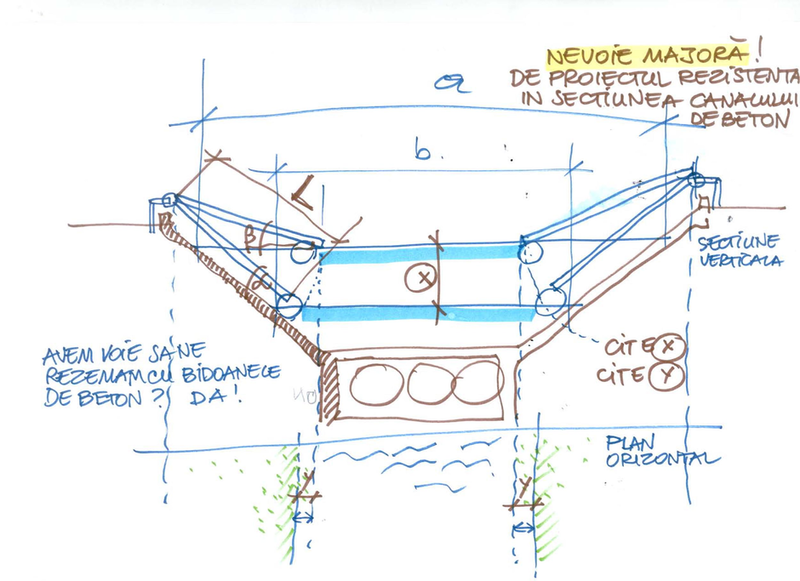 NEVOIE MAJORĂ!
DE PROIECTUL REZISTENTA
IN SECTIUNEA CANALULUI
DE BETON
a
b
L
β
SECTIUNE
VERTICALA
α
X
AVEM VOIE SA NE
REZEMAM CU BIDOANELE
DE BETON? DA!
CITE X
CITE Y
PLAN
ORIZONTAL
Y
Y